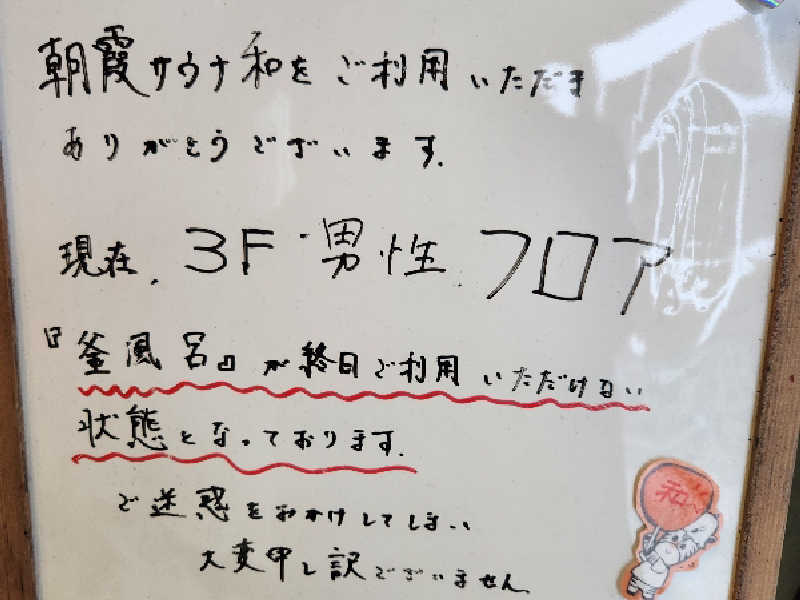 朝霞サウナ和をご利用いただき
ありがとうございます。
現在、3F・男性フロア
『釜風呂』が終日ご利用いただけない
状態となっております。
ご迷惑をおかけしてしまい
大変申し訳ございません
和